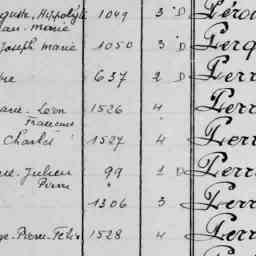 guste, Hippolyte 1049 3 D Péro
Jean-Marie
Joseph Marie 1050 3 D Perq
re 637 2 D Perr
Léon 1526 4 Perr
Francois
Charles 1527 4 Perr
Julien 99 1 D Perr
Pierre
1306 3 Perr
Pierre-Félix 1528 4 Perr